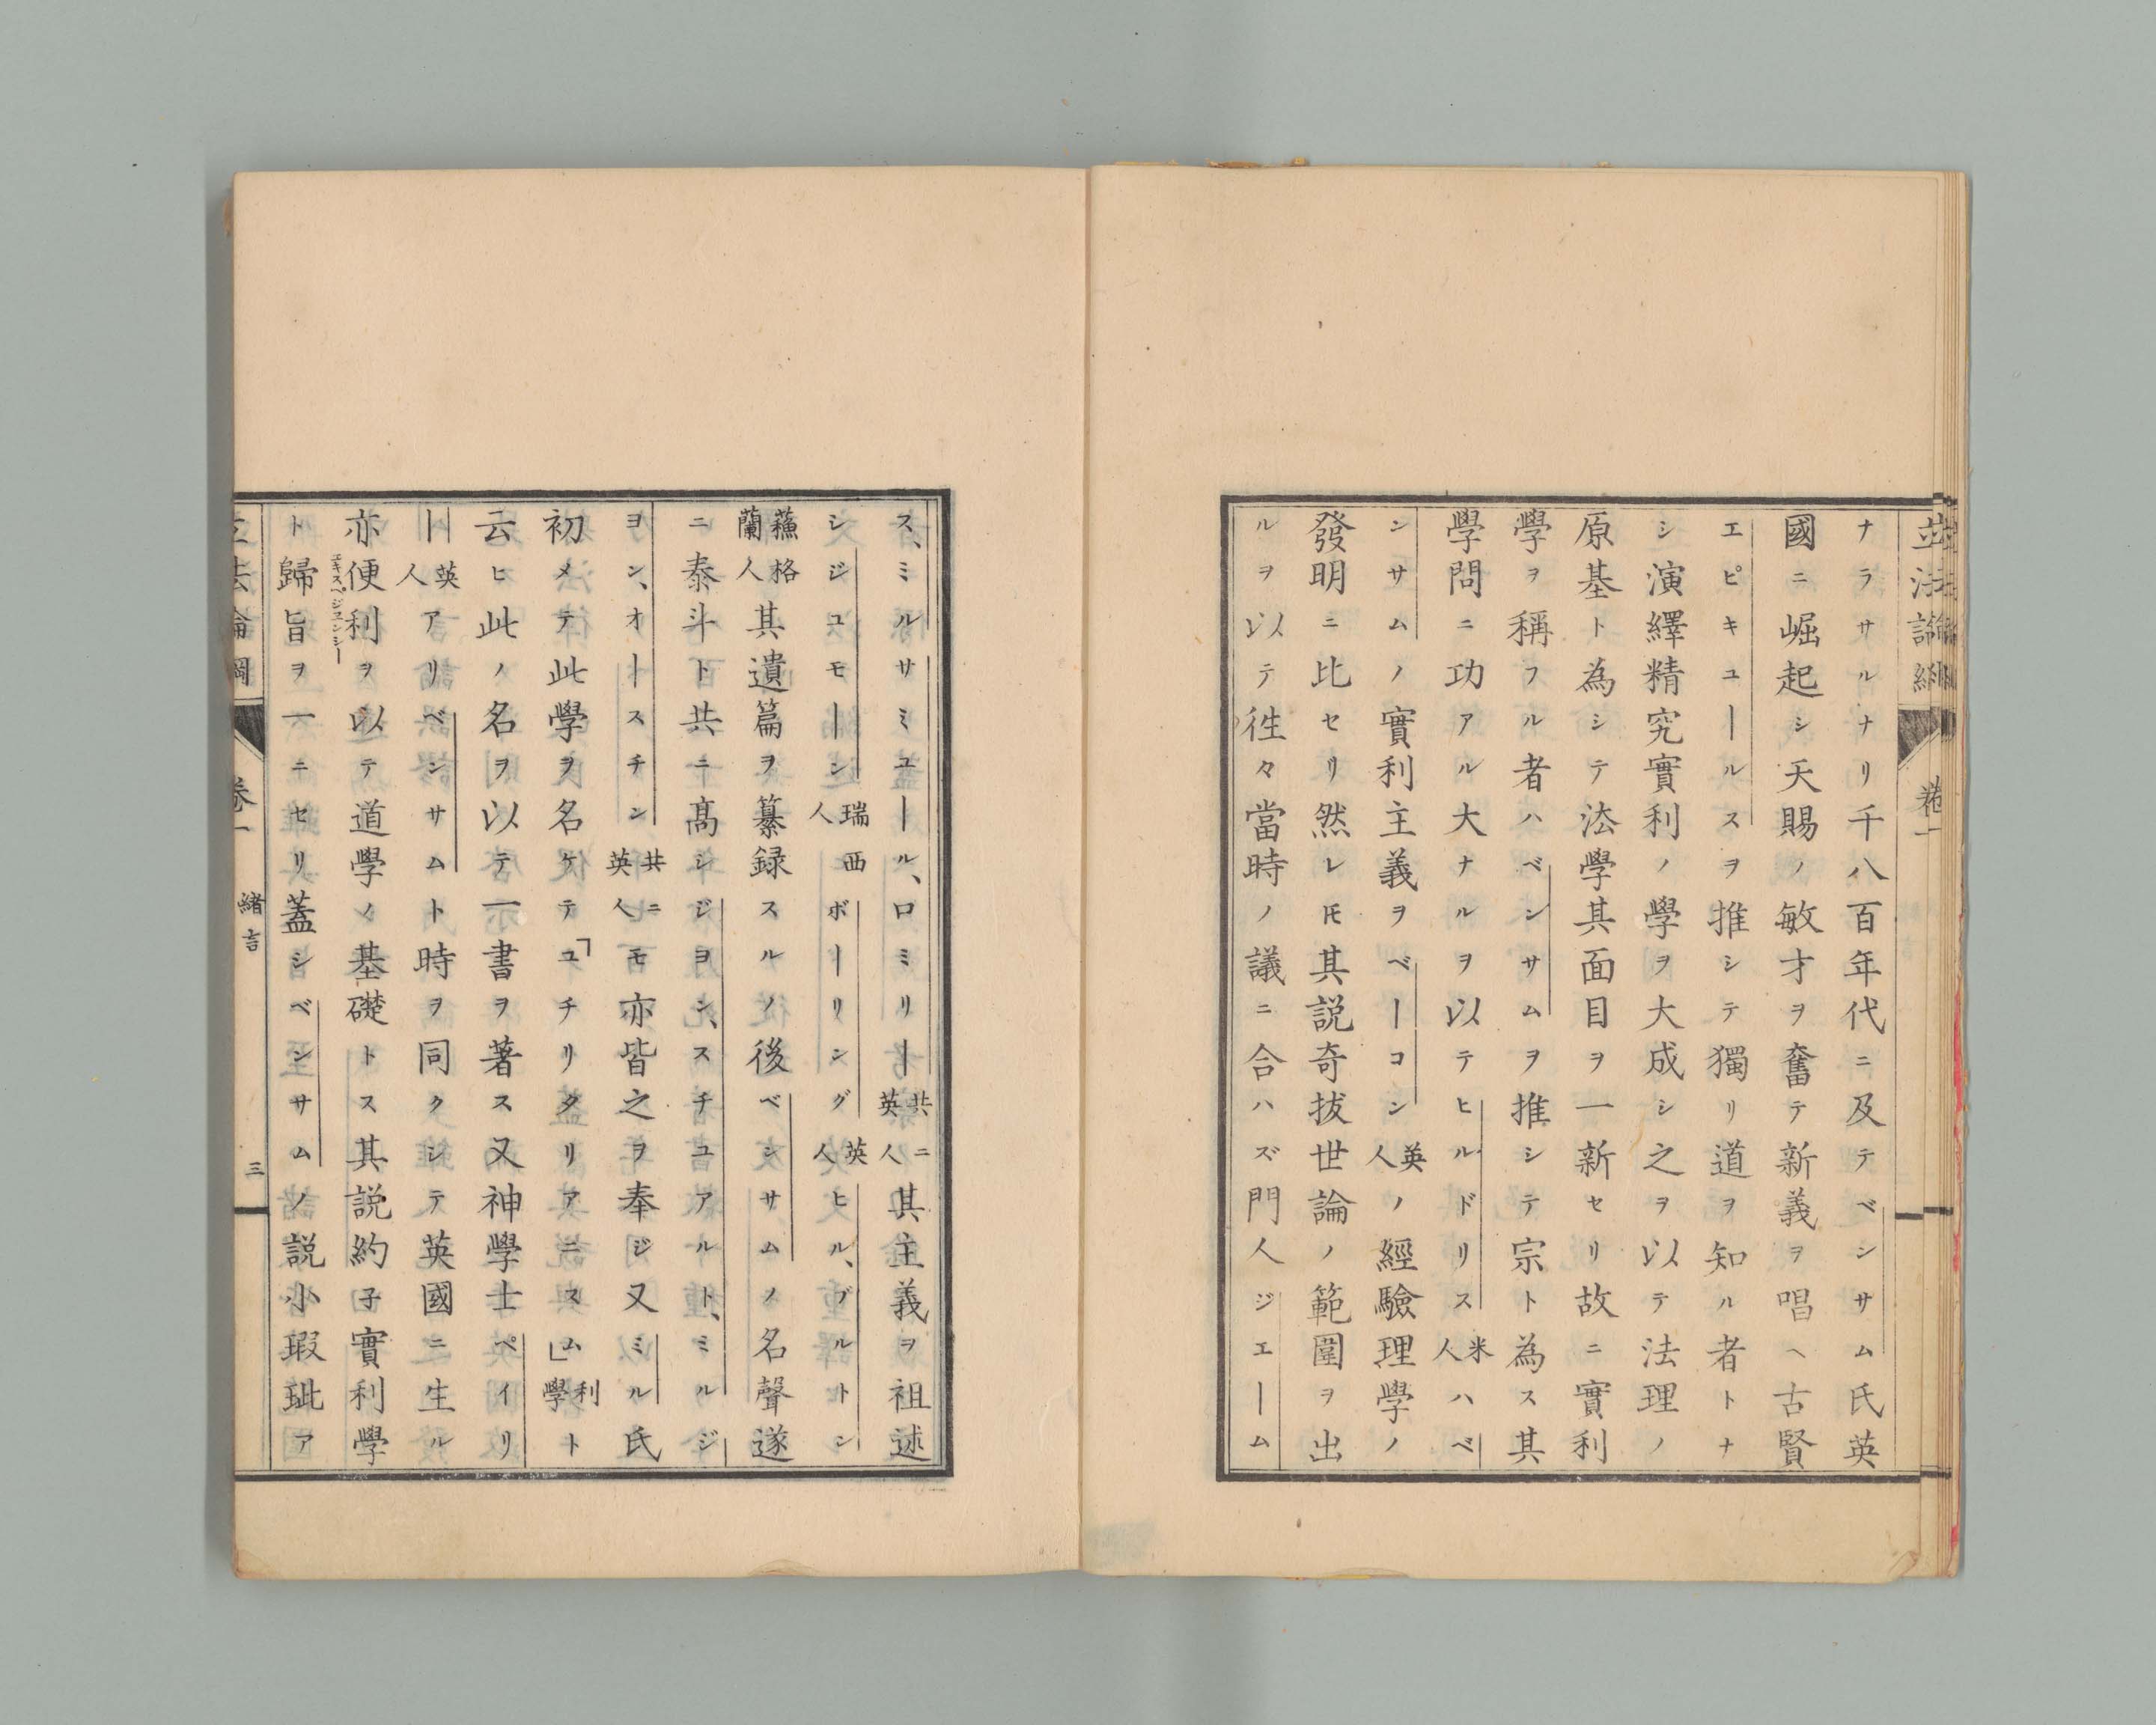 立法論綱 卷一
ナラサルナリ千八百年代ニ及テベンサム氏英
國ニ崛起シ天賜ノ敏才ヲ奮テ新義ヲ唱ヘ古賢
エピキユールスヲ推シテ獨リ道ヲ知ル者トナ
シ演繹精究實利ノ學ヲ大成シ之ヲ以テ法理ノ
原基ト為シテ法學其面目ヲ一新セリ故ニ實利
學ヲ稱フル者ハベンサムヲ推シテ宗ト為ス其
學問ニ功アル大ナルヲ以テヒルドリス米人ハベ
ンサムノ實利主義ヲベーコン英人ノ經驗理學ノ
發明ニ比セリ然レ𪜈其説奇拔世論ノ範圍ヲ出
ルヲ以テ徃々當時ノ議ニ合ハズ門人ジエーム
ス、ミルサミユール、ロミリー共ニ英人其主義ヲ祖述
シジユモーン瑞西人ボーリング英人ヒル、ブルトン
蘓格蘭人其遺篇ヲ纂録スルノ後ベンサムノ名聲遂
ニ泰斗ト共ニ髙シジヨン、スチユアルト、ミルジ
ヨン、オースチン共ニ英人モ亦皆之ヲ奉ジ又ミル氏
初メテ此學ヲ名ケテ「ユチリタリアニスム」利學ト
云ヒ此ノ名ヲ以テ一書ヲ著ス又神學士ペイリ
ー英人アリベンサムト時ヲ同クシテ英國ニ生ル
亦便利エキスペジエンシーヲ以テ道學ノ基礎トス其説約子實利學
ト歸旨ヲ一ニセリ蓋シベンサムノ説小瑕玼ア
立法論綱 卷一 緒言 三